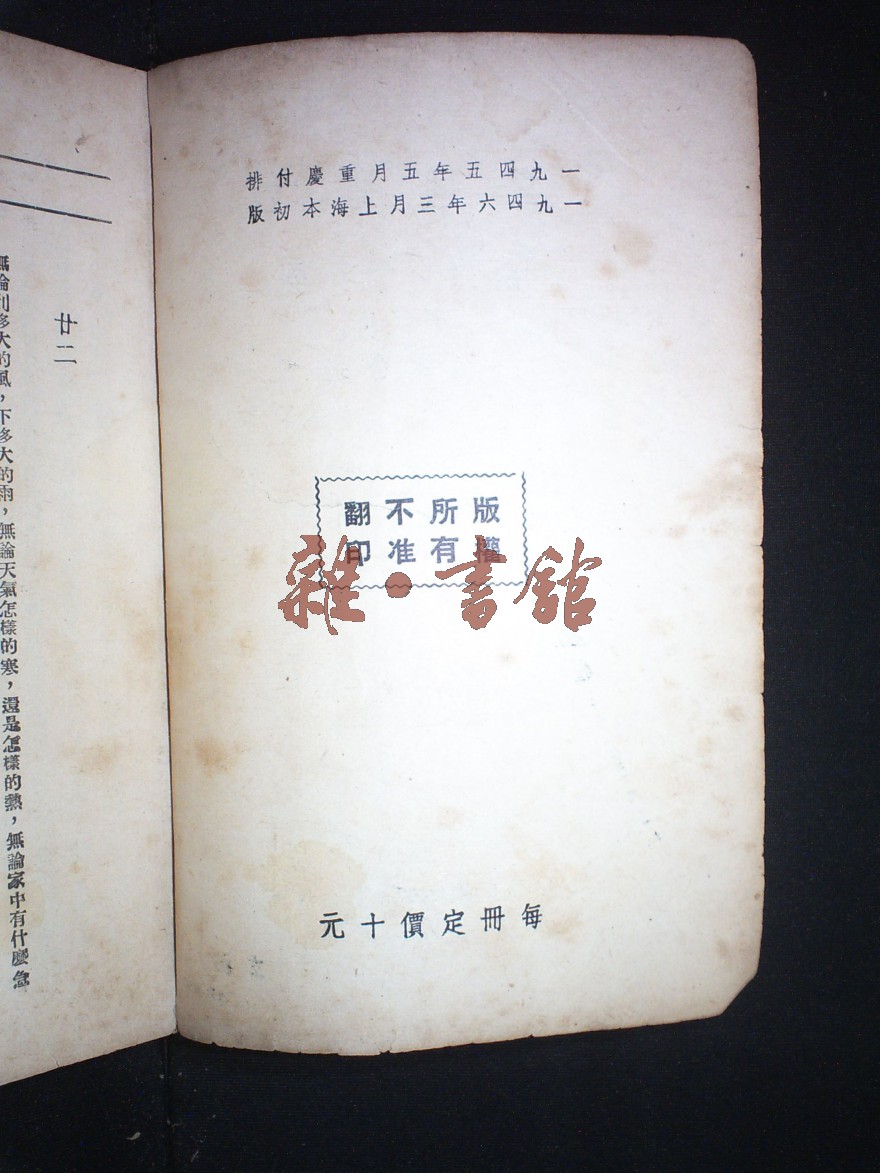 一九四五年五月重慶付排
一九四六年三月上海本初版
版權
所有
不准
翻印
雜·書館
每冊定價十元
廿二
無論刮多大的風，下多大的雨，無論天氣怎樣的寒，還是怎樣的熱，無論家中有什麼急